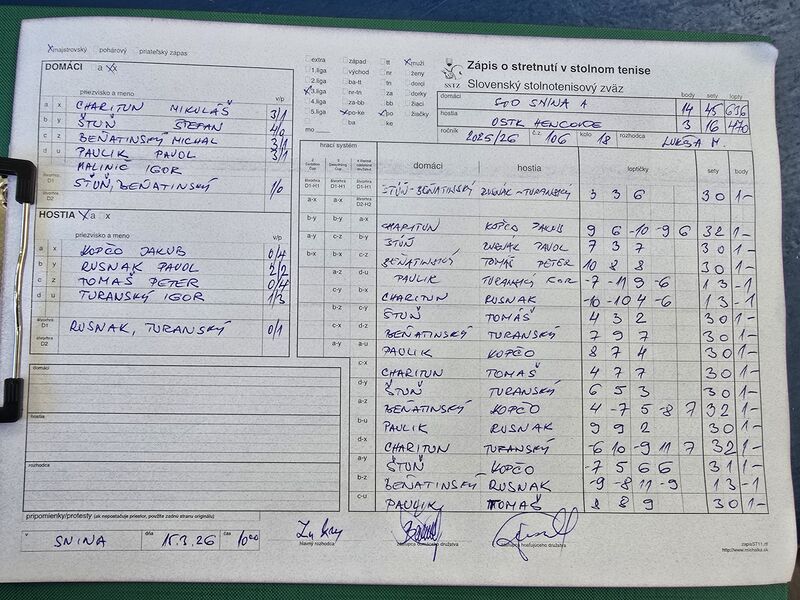 x majstrovský pohárový priateľský zápas
DOMÁCI a x
priezvisko a meno v/p
a x CHARITUN MIKULÁŠ 3/1
b y ŠTUŇ ŠTEFAN 4/0
c z BEŇATINSKÝ MICHAL 3/1
d u PAULIK PAVOL 3/1
MALINIČ IGOR
štvorhra D1 ŠTUŇ, BEŇATINSKÝ 1/0
štvorhra D2
HOSTIA X a x
priezvisko a meno v/p
a x KOPČO JAKUB 0/4
b y RUSNAK PAVOL 2/2
c z TOMAŠ PETER 0/4
d u TURANSKÝ IGOR 1/3
štvorhra D1 RUSNAK, TURANSKÝ 0/1
D2
domáci
hostia
rozhodca
pripomienky/protesty (ak nepostačuje priestor, použite zadnú stranu originálu)
v SNINA dňa 15.3.26 čas 1000
extra západ tt x muži
1.liga východ nr ženy
2.liga ba-tt tn dorci
x 3.liga nr-tn za dorky
4.liga za-bb bb žiaci
5.liga x po-ke x po žiačky
mo ba ke
Zápis o stretnutí v stolnom tenise
SSTZ Slovenský stolnotenisový zväz
body sety lopty
domáci STO SNINA A 14 45 636
hostia OSTK HENCOVCE 3 16 470
ročník 2025/26 č.z. 106 kolo 18 rozhodca LUKŠA M.
hrací systém domáci hostia loptičky sety body
ŠTUŇ-BEŇATINSKÝ RUSNAK-TURANSKÝ 3 3 6 3 0 1 -
CHARITUN KOPČO JAKUB 9 6 -10 -9 6 3 2 1 -
ŠTUŇ RUSNAK PAVOL 7 3 7 3 0 1 -
BEŇATINSKÝ TOMAŠ PETER 10 8 8 3 0 1 -
PAULIK TURANSKÝ IGOR -7 -11 9 -6 1 3 - 1
CHARITUN RUSNAK -10 -10 4 -6 1 3 - 1
ŠTUŇ TOMÁŠ 4 3 2 3 0 1 -
BEŇATINSKÝ TURANSKÝ 7 9 7 3 0 1 -
PAULIK KOPČO 8 7 4 3 0 1 -
CHARITUN TOMAŠ 4 7 7 3 0 1 -
ŠTUŇ TURANSKÝ 6 5 3 3 0 1 -
BEŇATINSKÝ KOPČO 4 -7 5 -8 7 3 2 1 -
PAULIK RUSNAK 9 9 2 3 0 1 -
CHARITUN TURANSKÝ -6 10 -9 11 7 3 2 1 -
ŠTUŇ KOPČO -7 5 6 6 3 1 1 -
BEŇATINSKÝ RUSNAK -9 -8 11 -9 1 3 - 1
PAULIK TOMAŠ 8 8 9 3 0 1 -
hlavný rozhodca zástupca domáceho družstva zástupca hosťujúceho družstva
zapisST11.rtf
http://www.michalka.sk